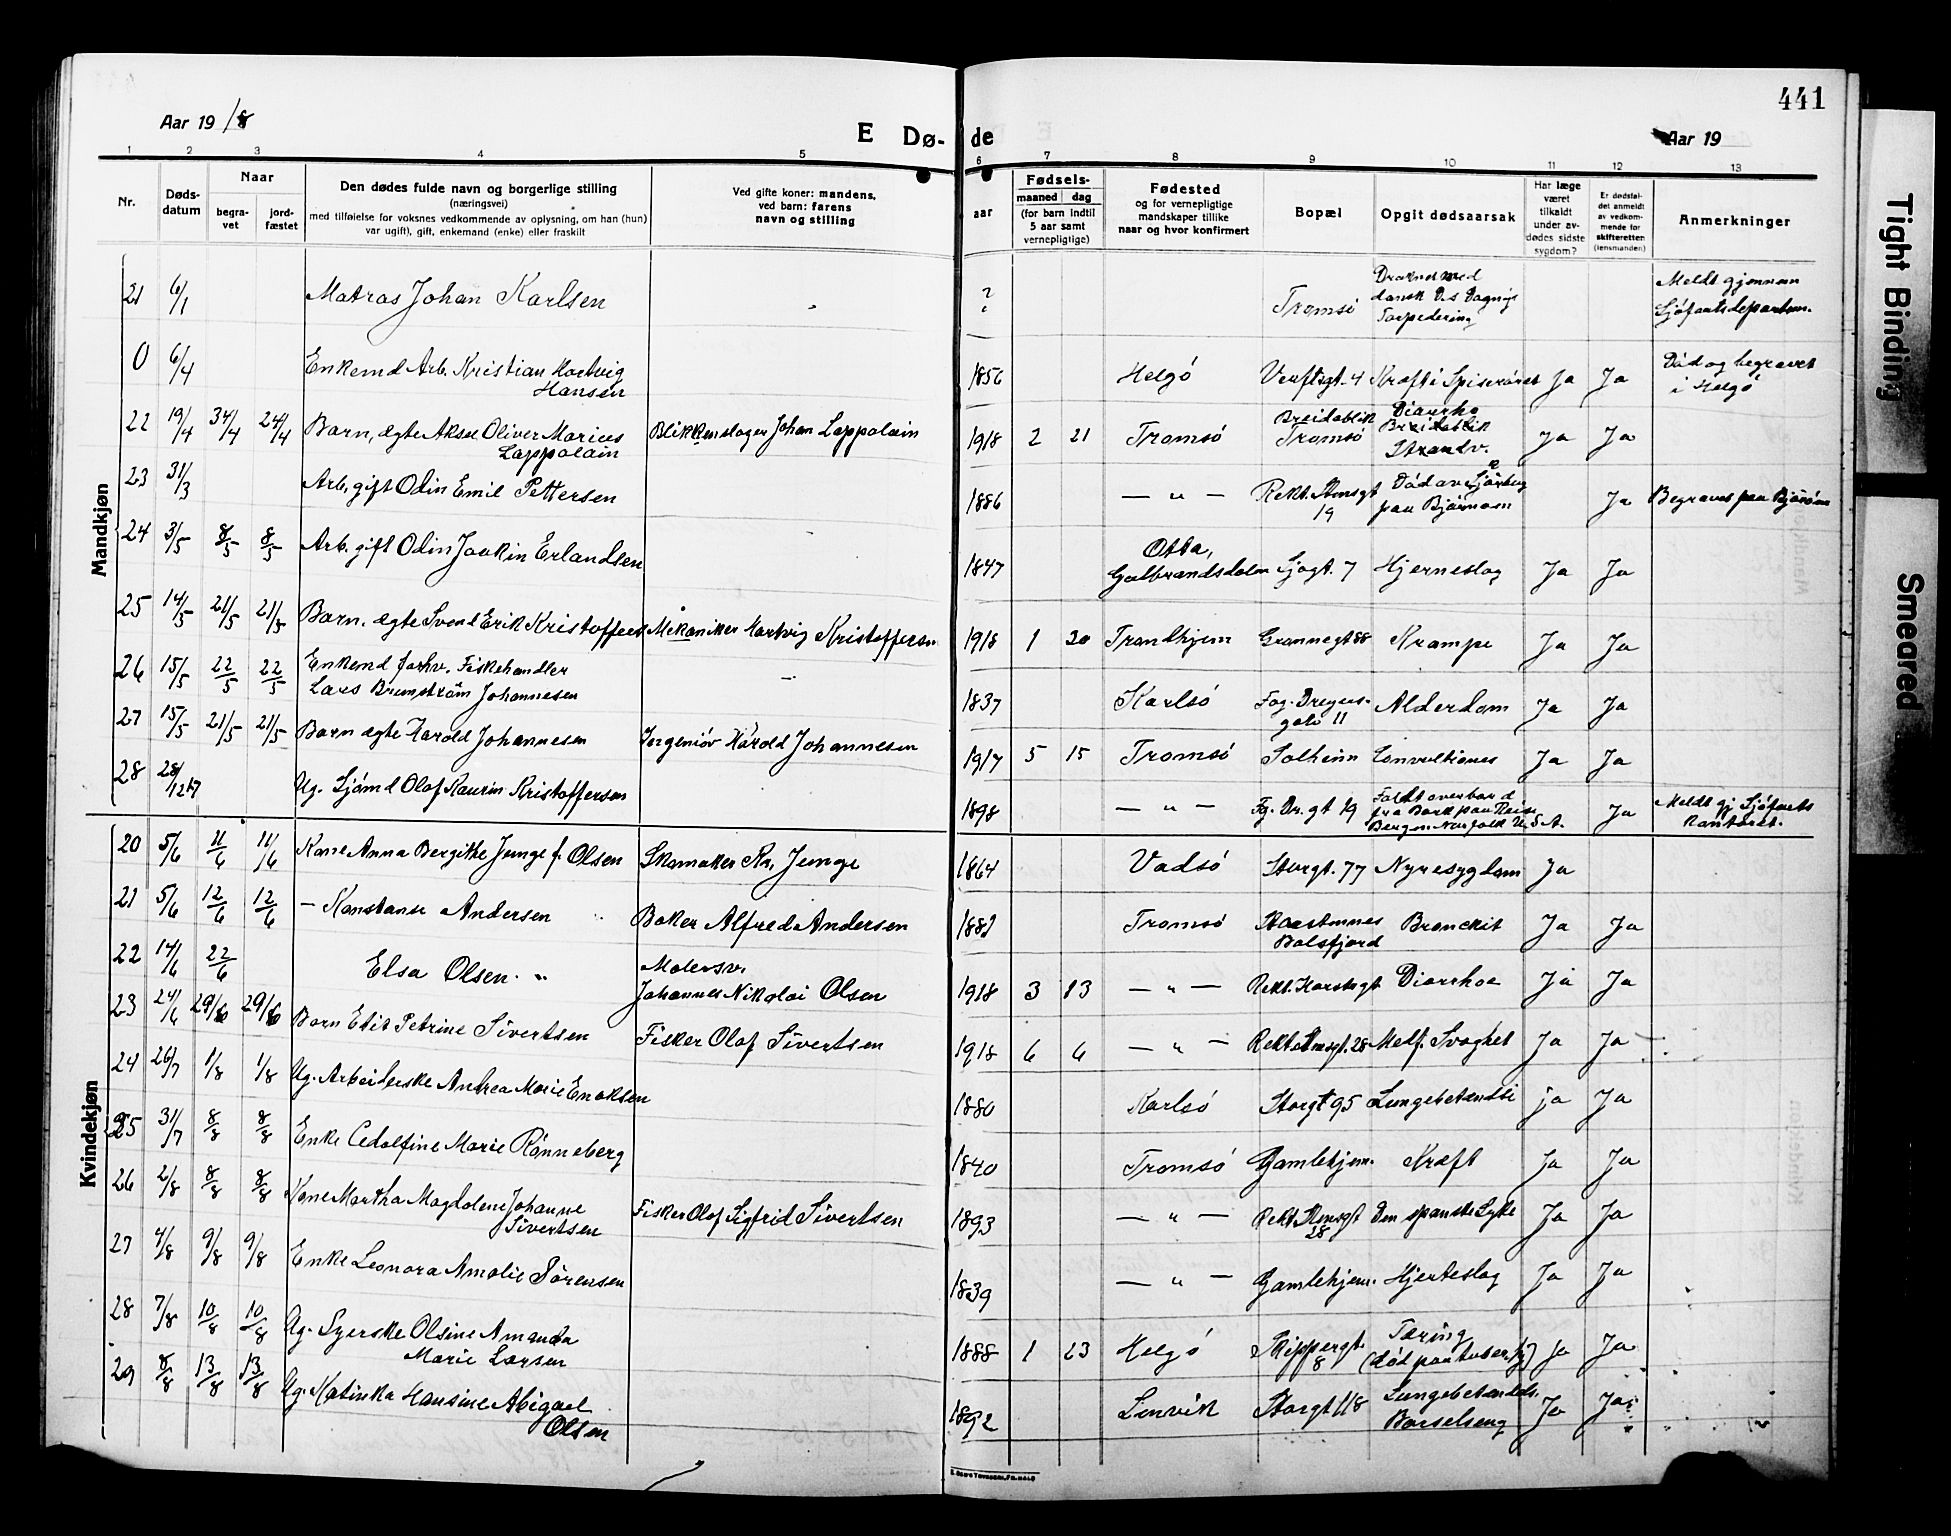 441
Aar 19 18
E Dø-
de
Aar 19
1 2 3 4 5 6 7 8 9 10 11 12 13
Nr.
Døds-
datum
Naar
begra-
vet
jord-
fæstet
Den dødes fulde navn og borgerlige stilling
(næringsvei)
med tilføielse for voksnes vedkommende av oplysning, om han (hun)
var ugift), gift, enkemand (enke) eller fraskilt
Ved gifte koner: mandens,
ved barn: farens
navn og stilling
Fødsels-
aar
maaned dag
(for barn indtil
5 aar samt
vernepligtige)
Fødested
og for vernepligtige
mandskaper tillike
naar og hvor konfirmert
Bopæl
Opgit dødsaarsak
Har læge
været
tilkaldt
under av-
dødes sidste
sygdom?
Er dødsfal-
det anmeldt
av vedkom-
mende for
skifteretten
(lensmanden)
Anmerkninger
Mandkjøn
21 6/1 Matros Johan Karlsen ? Tromsö
dansk D.s Dagny
Torpedering
Meldt gjennem
Sjöfartsdepartem.
0 6/4 Enkemd Arb. Kristian Hartvig
Hansen
1856 Helgö Verftsgt. 4 Kræft i Spiseröret Ja Ja
Död og begravet
i Helgö
22 19/4 24/4 24/4 Barn, ægte Aksel Oliver Marius
Lappalain
Blikkenslager Johan Lappalain
1918 2 21 Tromsö
Breidablik
Tromsö
Diaurho
Breidablik
Strandv.
Ja Ja
23 31/3 Arb. gift Odin Emil Pettersen
1886 — " — Rekt. Stensgt
19
paa Björnöen
Ja Begraves paa Björnöen
24 3/5 8/5 8/5 Arb. gift Odin Joakin Erlandsen
1847 Otta,
Gulbrandsdalen Sjøgt. 7 Hjerneslag Ja Ja
25 14/5 21/5 21/5 Barn, ægte Svend Erik Kristoffersen Mekaniker Hartvig Kristoffersen
1918 1 20 Trondhjem Grønnegt 88 Krampe Ja Ja
26 15/5 22/5 22/5 Enkemd forhv. Fiskehandler
Lars Brunström Johannesen —
1837 Karlsö Fog. Dreyers-
gate 11 Alderdom Ja Ja
27 15/5 21/5 21/5 Barn ægte Harold Johannesen Ingeniör Harold Johannesen
1917 5 15 Tromsö Solheim Convultiones Ja Ja
28 28/12 17 Ug. Sjömd Olaf Kaurin Kristoffersen
1898 — " — Fg. Dr. gt 19 Faldt overbord
fra Bark paa Reise
Bergen Norfolk U.S.A. Ja
Meldt gj Sjöfarts
kontoret.
Kvindekjøn
20 5/6 11/6 11/6 Kone Anna Bergithe Junge f. Olsen Skomaker Kr. Junge
1864 Vadsö Storgt. 77 Nyresygdom Ja
21 5/6 12/6 12/6 — Konstanse Andersen Baker Alfred Andersen
1882 Tromsö
Balsfjord Bronckit Ja Ja
22 14/6 22/6 Elsa Olsen Malersv.
Johannes Nikolai Olsen
1918 3 13 — " — Rekt. Horstsgt Diarrhoe Ja Ja
23 24/6 29/6 29/6 Barn Edit Petrine Sivertsen Fisker Olaf Sivertsen
1918 6 6 — " — Rekt Stensgt. 28 Melf. Svaghet Ja Ja
24 26/7 1/8 1/8 Ug. Arbeiderske Andrea Marie Enoksen
1880 Karlsö Storgt 95 Lungebetændelse Ja Ja
25 31/7 8/8 8/8 Enke Adolfine Marie Rönneberg
1840 Tromsö Gamlehjem. Kræft Ja Ja
26 2/8 8/8 8/8 Kone Martha Magdalene Johanne
Sivertsen
Fisker Olaf Sigfrid Sivertsen
1893 — " — Rekt. Stensgt
28 Den spanske Syke Ja Ja
27 4/8 9/8 9/8 Enke Leonora Amalie Sörensen
1839 — " — Gamlehjem. Hjerteslag Ja Ja
28 7/8 10/8 10/8 Ug. Syerske Olsine Amanda
Marie Larsen
1888 1 23 Helgö Skippergt.
8 Tæring
(död paa tuber.hj) Ja Ja
29 8/8 13/8 13/8 Ug. Katinka Hansine Abigael
Olsen
1892 Lenvik Storgt 118 Lungebetændels.
Barselseng Ja Ja
Tight Binding
Smeared